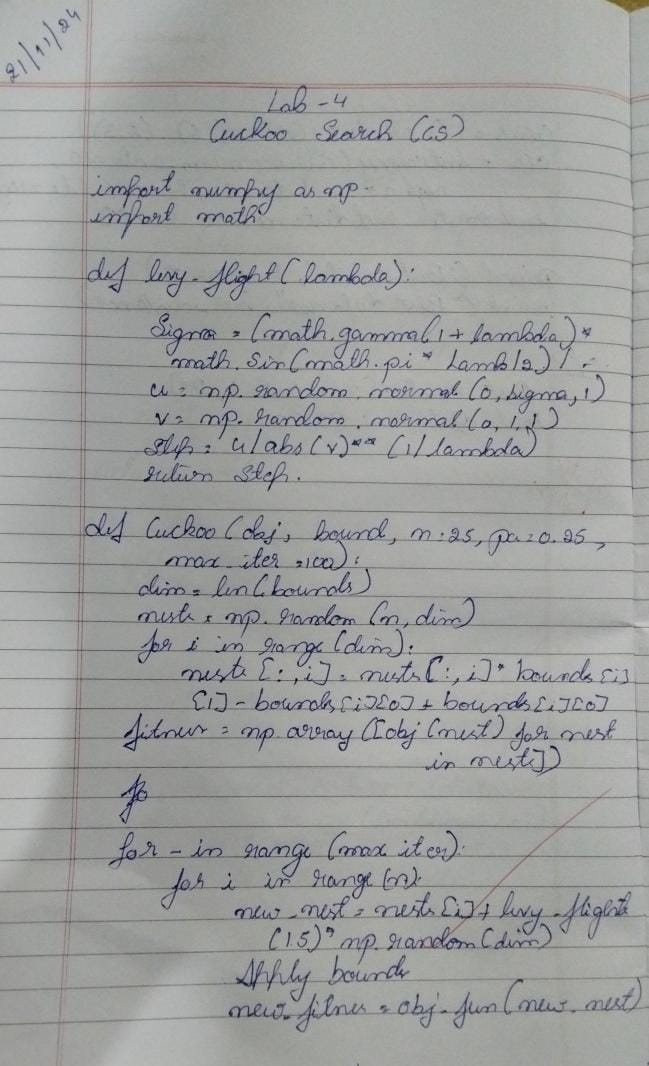 21/11/24
Lab - 4
Cuckoo Search (CS)
import numpy as np
import math
def levy-flight(lambda):
Sigma = (math.gamma(1 + lambda)*
math.sin(math.pi * Lamb/2) / -
u = np.random.normal(0, sigma, 1)
v = np.random.normal(0, 1, 1)
step = u/abs(v)** (1/lambda)
return step.
def Cuckoo(obj, bound, n=25, pa=0.25,
max-iter=100):
dim = len(bounds)
nests = np.random(n, dim)
for i in range(dim):
nests[:,i] = nests[:,i]* bounds[i]
[1] - bounds[i][0] + bounds[i][0]
fitness = np.array([obj(nest) for nest
in nests])
for - in range(max iter):
for i in range(n):
new-nest = nests[i] + levy-flight
(1.5)* np.random(dim)
Apply bounds
new-fitnes = obj-fun(new.nest)